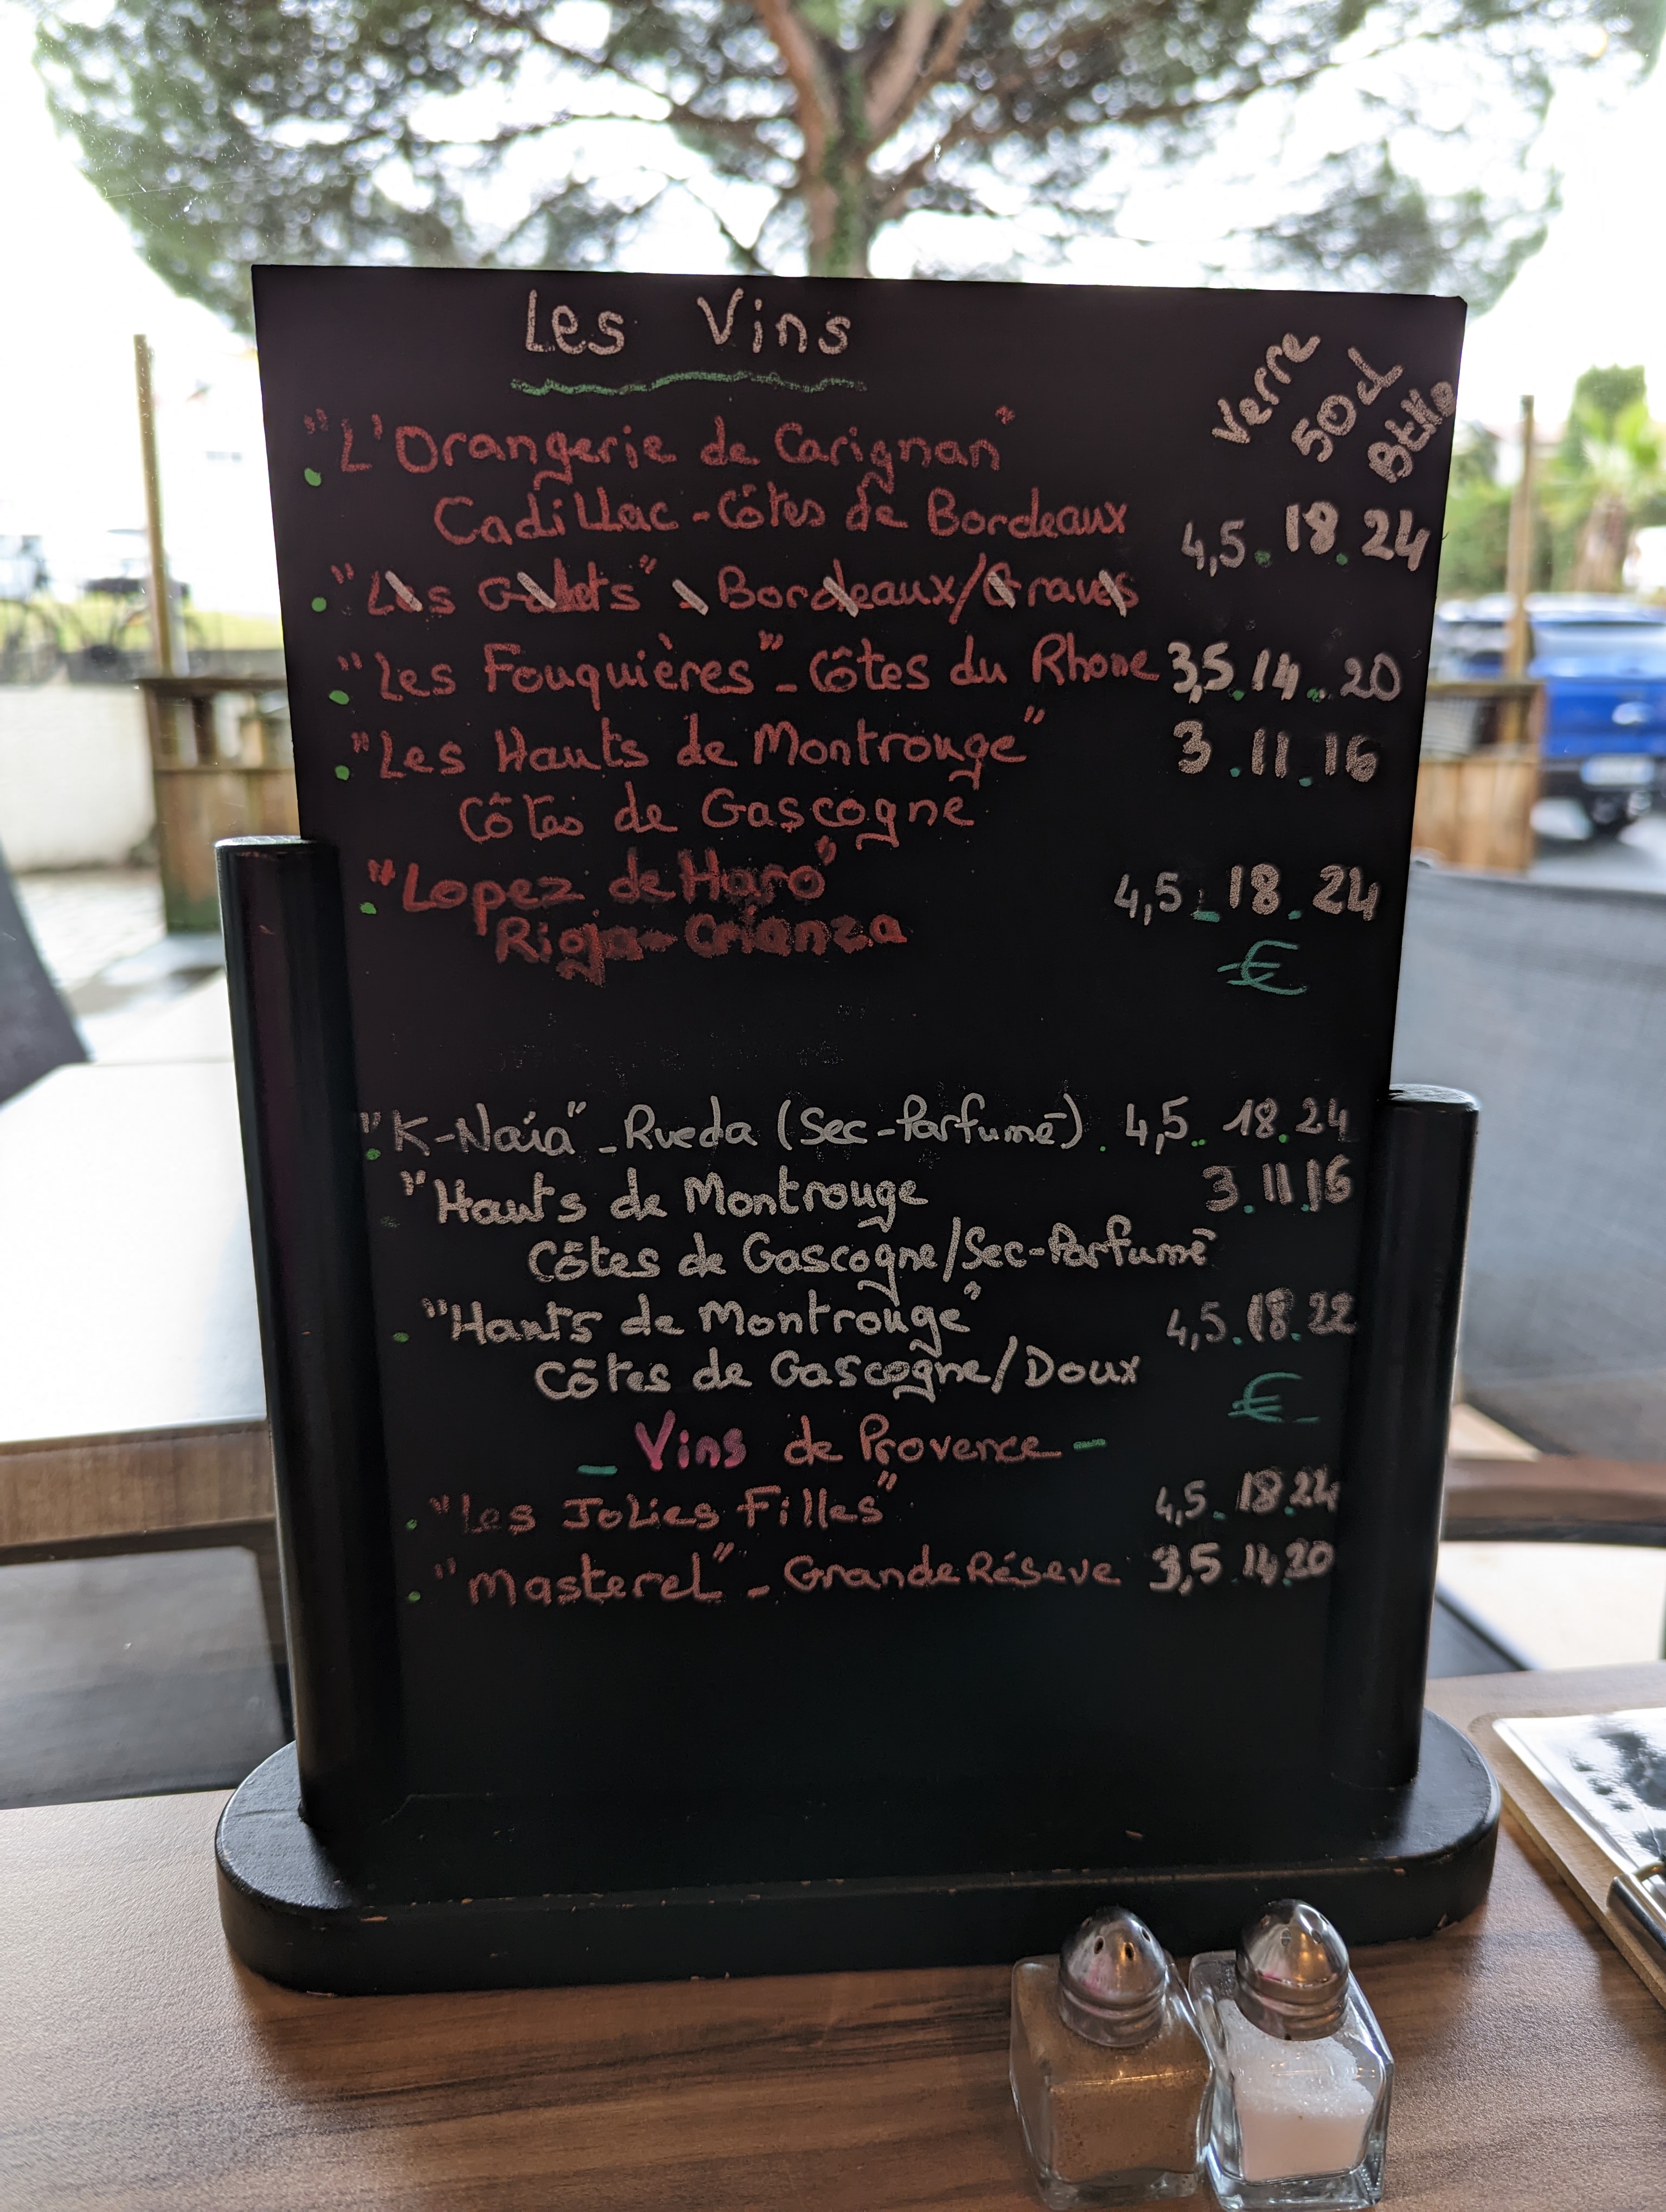 Les Vins
Verre 50cl Btlle
"L'Orangerie de Carignan"
Cadillac - Côtes de Bordeaux 4,5. 18. 24
"Les Galets" - Bordeaux/Graves
"Les Fouquières" - Côtes du Rhone 3,5. 14.. 20
"Les Hauts de Montrouge" 3 . 11 . 16
Côtes de Gascogne
"Lopez de Haro" 4,5 - 18 . 24
Rioja - Crianza
€
"K-Naia" - Rueda (Sec-Parfumé) . 4,5.. 18. 24
"Hauts de Montrouge 3. 11. 16
Côtes de Gascogne/Sec-Parfumé
"Hauts de Montrouge" 4,5. 18. 22
Côtes de Gascogne/Doux
€ -
- Vins de Provence -
"Les Jolies Filles" 4,5 - 18. 24
"Masterel" - Grande Réseve 3,5. 14. 20